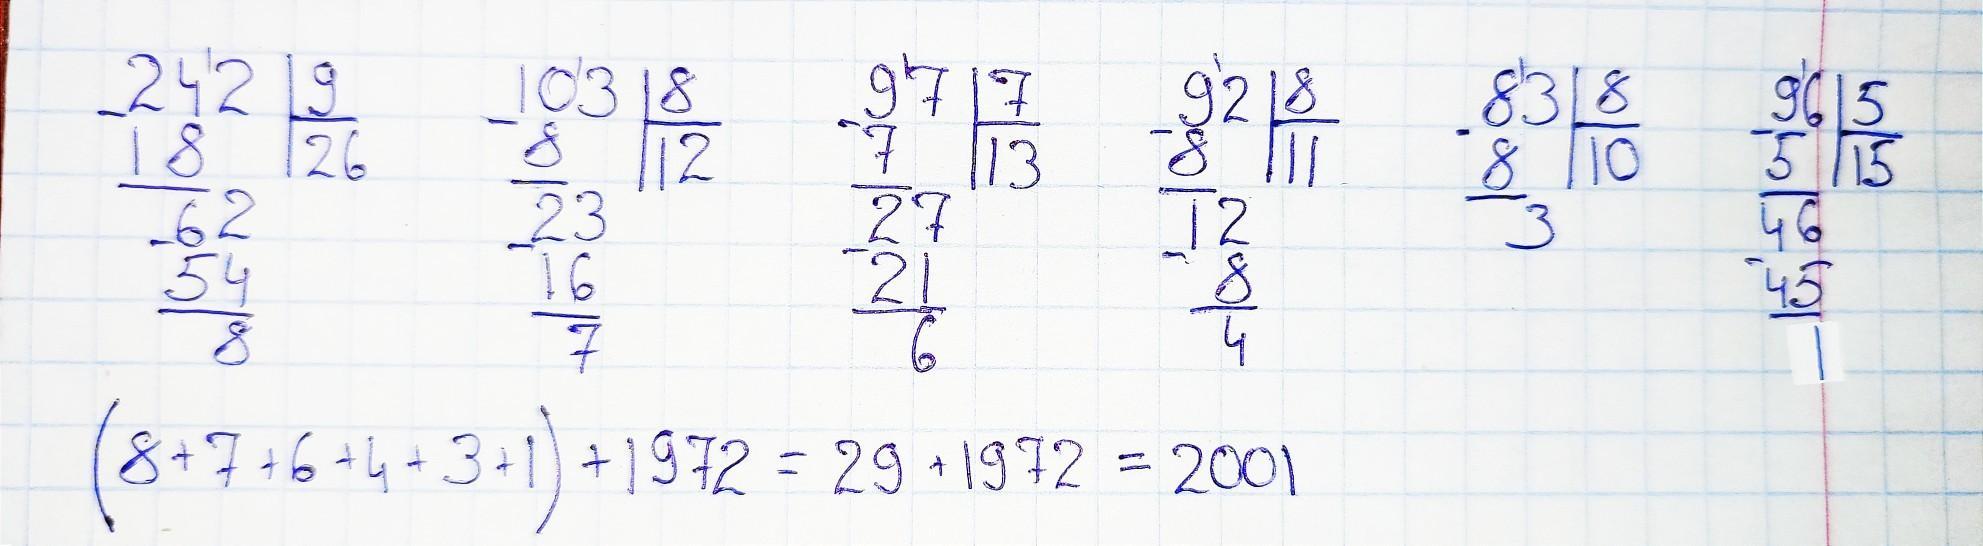 -242 | 9 -103 | 8 -97 | 7 -92 | 8 -83 | 8 -96 | 5
18 | 26 8 | 12 7 | 13 8 | 11 8 | 10 5 | 15
-62 -23 -27 -12 3 -46
54 16 21 8 45
8 7 6 4 1
(8+7+6+4+3+1)+1972=29+1972=2001